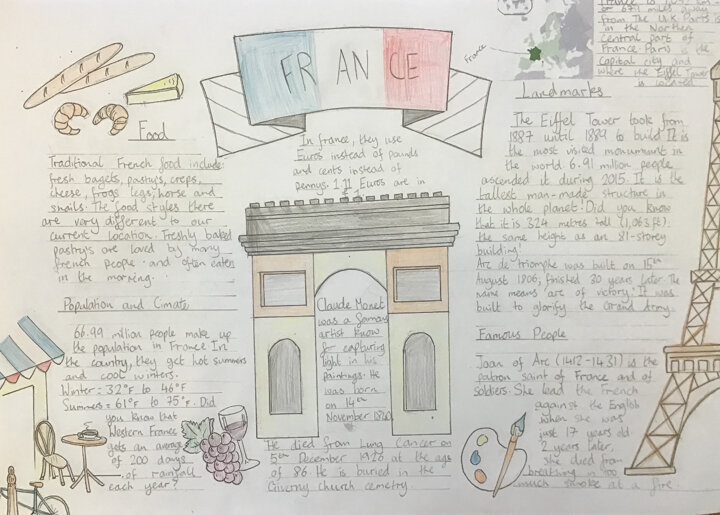 FRANCE
France
or 679 miles away
from The U.K. Paris is
in the Northern
Central part of
France. Paris is the
capital city and
where the Eiffel Tower
is located
Food
Traditional French food include
fresh bagets, pastrys, creps,
cheese, frogs legs, horse and
snails. The food styles there
are vary different to our
current location. Freshly baked
pastrys are loved by many
french people and often eaten
in the morning.
Population and Cimate
66.99 million people make up
the population in France. In
the country, they get hot summers
and cool winters.
Winter = 32°F to 46°F
Summer = 61°F to 75°F. Did
you know that
Western France
gets an average
of 200 days
of rainfall
each year?
In france, they use
Euros instead of pounds
and cents instead of
pennys. 1.11 Euros are in
£1
Claude Monet
was a famous
artist know
for capturing
light in his
paintings. He
was born
on 14th
November 1840
He died from Lung Cancer on
5th December 1926 at the age
of 86. He is buried in the
Giverny Church cemetry.
Landmarks
The Eiffel Tower took from
1887 until 1889 to build. It is
the most visited monument in
the world 6.91 million people
ascended it during 2015. It is the
tallest man-made structure in
the whole planet. Did you know
that it is 324 metres tall (1,063ft)
the same height as an 81-storey
building!
Arc de triomphe was built on 15th
August 1806, finished 30 years later. The
name means arc of victory. It was
built to glorify the Grand Army.
Famous People
Joan of Arc (1412-1431) is the
patron saint of France and of
soldiers. She lead the French
against the English
when she was
just 17 years old.
2 years later,
she died from
breathing in too
much smoke at a fire.